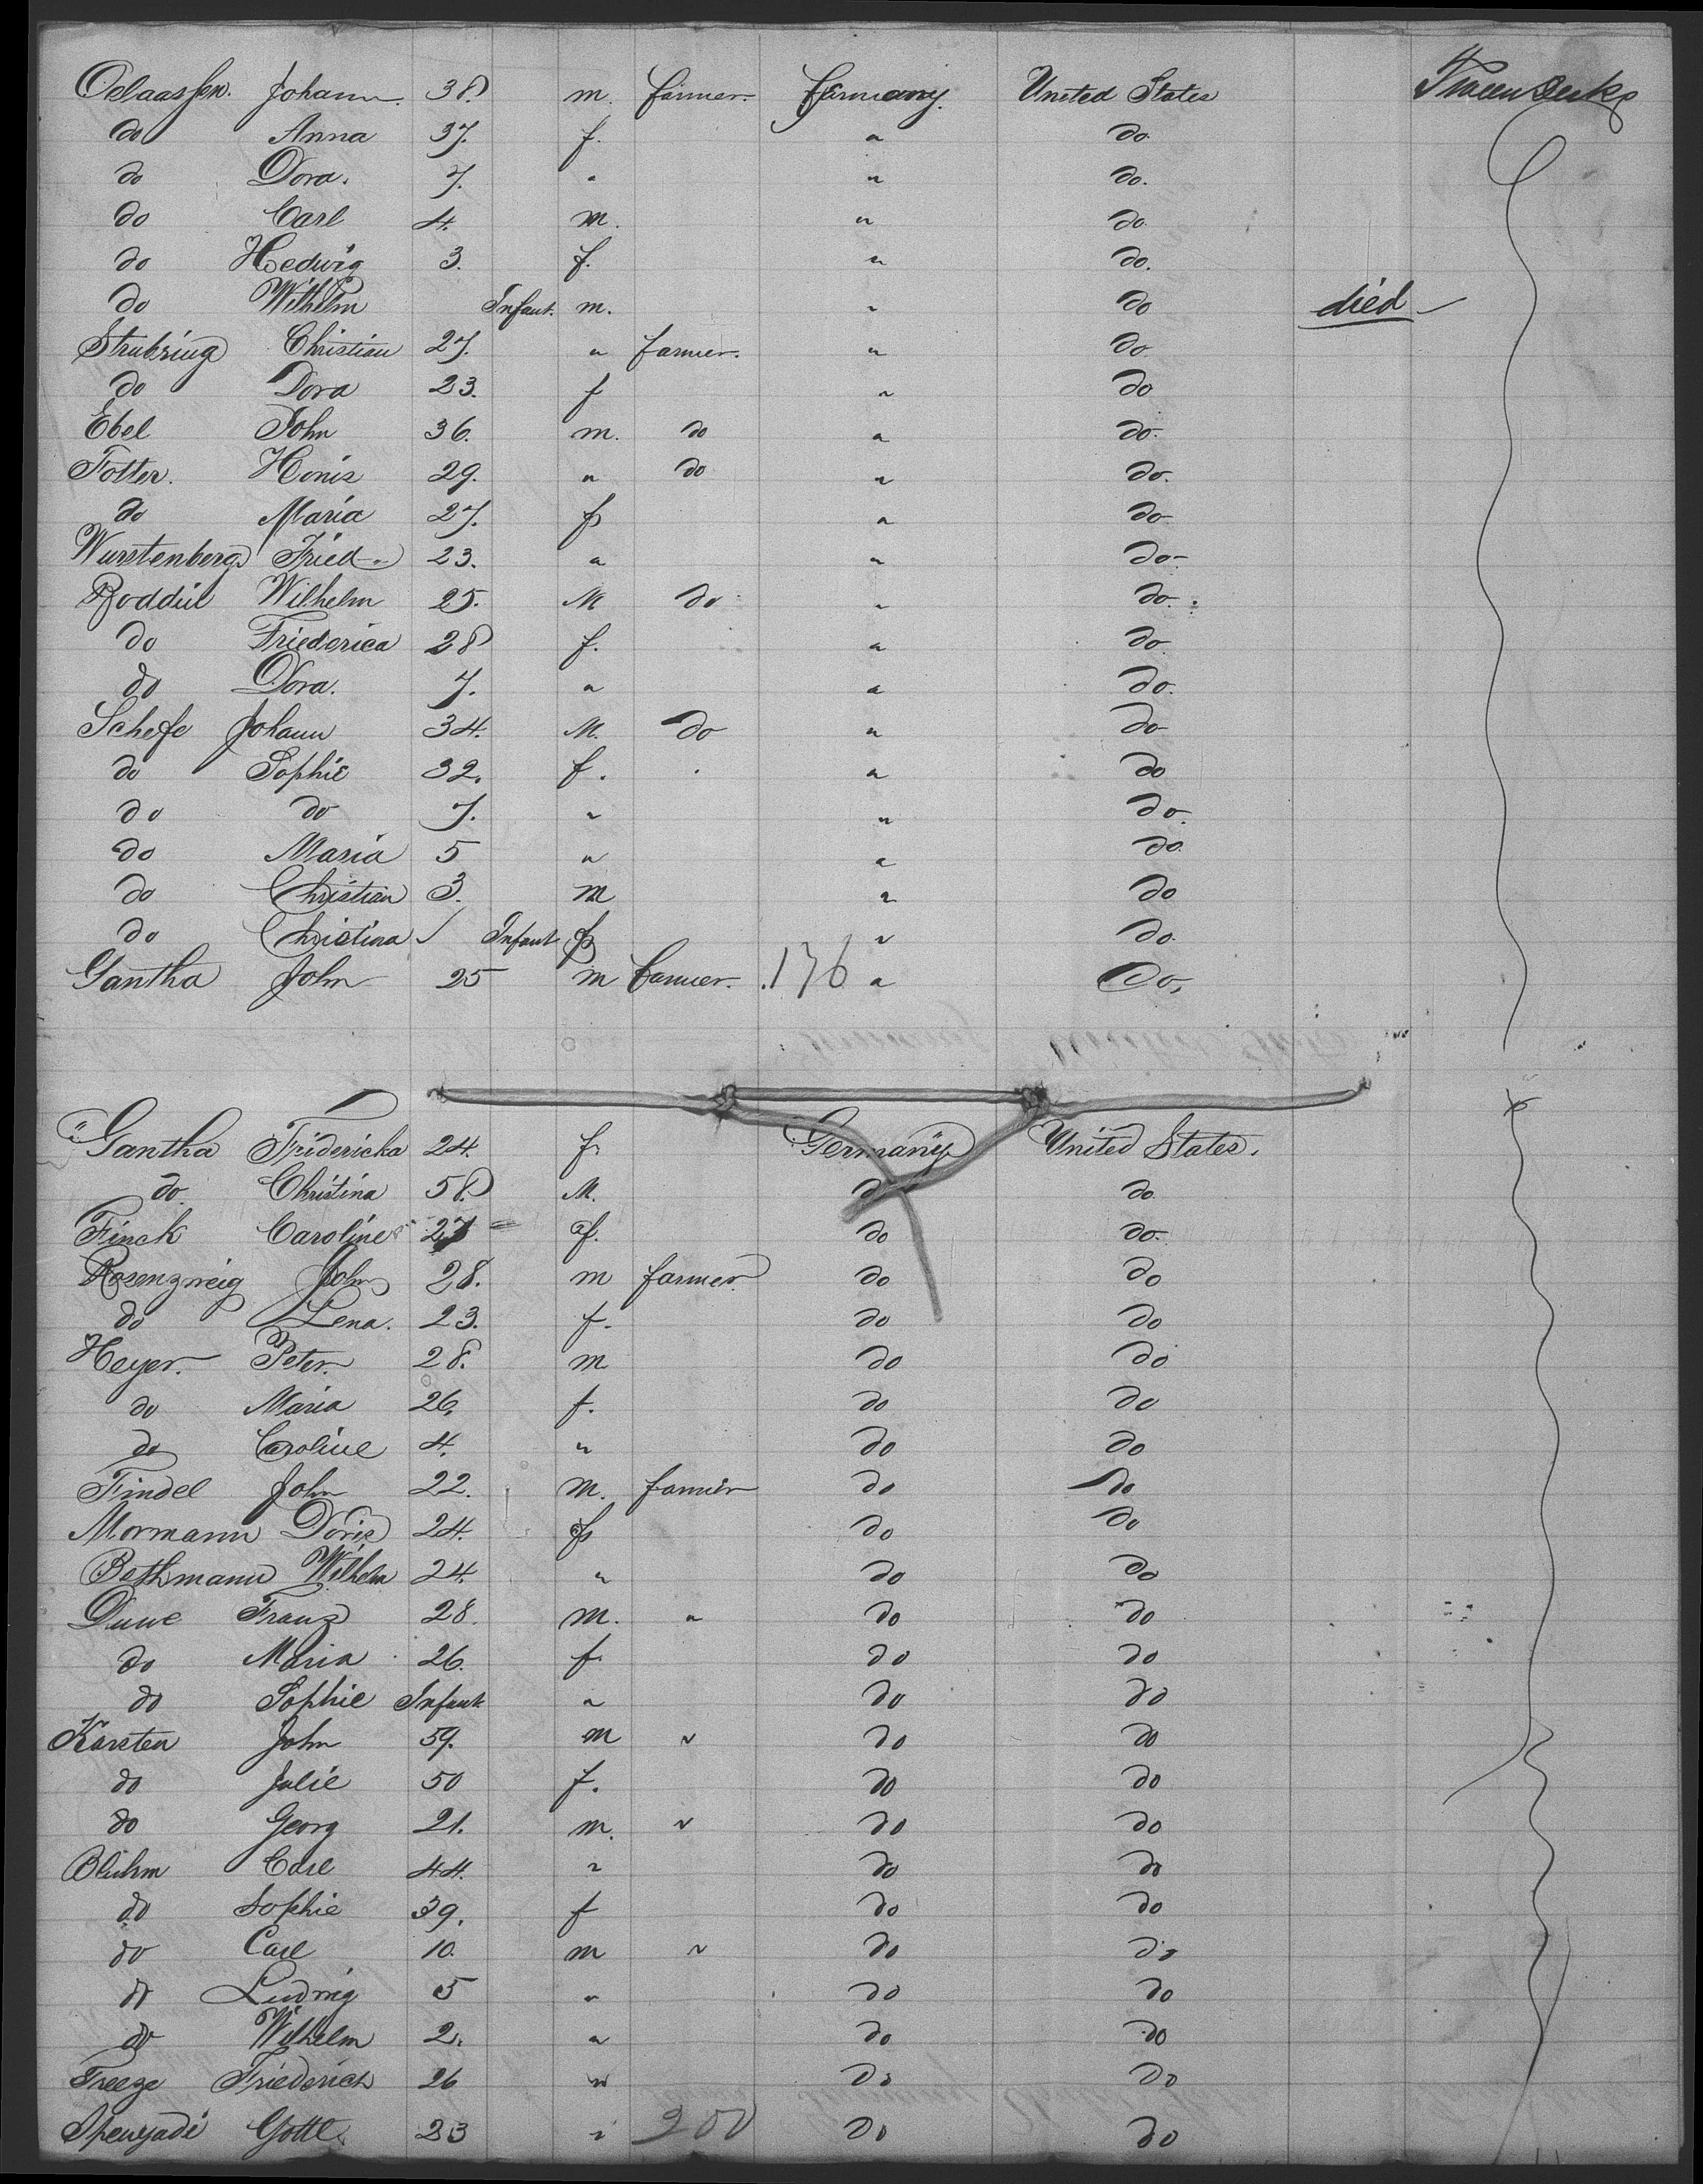 Johann. 38. m. farmer. Germany. United States Tween Decks
do Anna 37. f. " do
do Dora. 7. " " do.
do Carl 4. m. " do
do Hedwig 3. f. " do.
do Wilhelm Infant. m. " do died
Strubring Christian 27. " farmer. " do
do Dora 23. f " do
Ebel John 36. m. do " do.
Totter. 29. " do " do.
do Maria 27. f " do
Wurstenberg Fried 23. " " do
Wilhelm 25. M do " do.
do Friederica 28 f. " do
do Dora. 7. " " do.
Schefe Johann 34. M. do " do
do Sophie 32. f. " do
do do 7. " " do.
do Maria 5 " " do.
do Christian 3. m " do
do Christina Infant f " do.
Gantha John 25 m farmer. 176 " Do,
Gantha Fridericka 24. f. Germany United States.
do. Christina 58. M. do do
Finck Caroline 27 f. do do.
Rosenzweig John 28. m farmer do do
do Lena. 23. f. do do
Heyer. Peter 28. m do do
do Maria 26. f. do do
do Caroline 4. " do do
Findel John 22. m. farmer do do
Mormann Doris 24. f do do
Bethmann Wilhelm 24. " do do
Duwe Franz 28. m. " do do
do Maria 26. f. do do
do Sophie Infant " do do
Karsten John 59. m " do do
do Julie 50 f. do do
do Georg 21. m. " do do
Bluhm Carl 44. " do do
do Sophie 39. f do do
do Carl 10. m " do do
do Ludwig 5 " do do
do Wilhelm 2. " do do
Freeze Friederich 26 " do do
Gottl. 23 " 200 do do